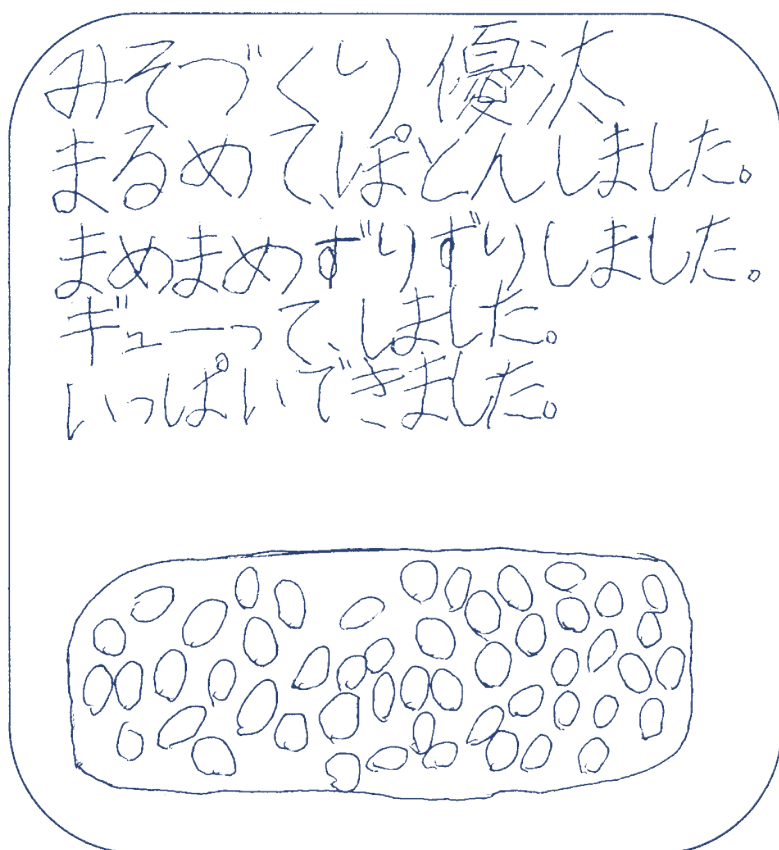 みそづくり優汰
まるめて、ぽとんしました。
まめまめずりずりしました。
ギューって、しました。
いっぱいできました。